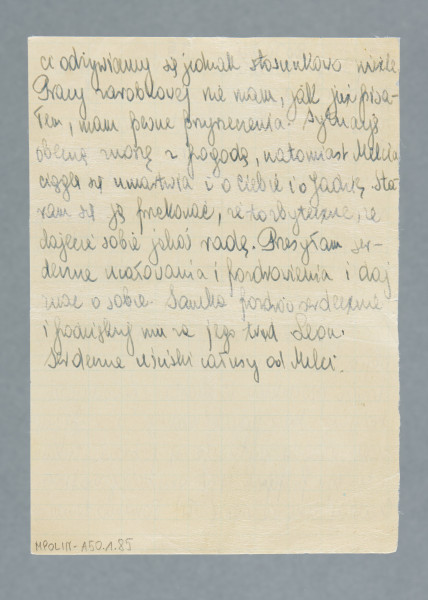 ce odżywiamy się jednak stosunkowo nieźle.
Pracy zarobkowej nie mam, jak już pisa-
łem, mam pewne przyrzeczenia. Sytuację
obecną znoszę z pogodą, natomiast Melcia
ciągle się umartwia i o Ciebie i o Jadzię. Sta
ram się ją przekonać, że to zbyteczne, że
dajecie sobie jakoś radę. Przesyłam ser-
deczne ucałowania i pozdrowienia i daj
znać o sobie. pozdrów serdecznie
i podziękuj mu za jego trud Leon.
Serdeczne uściski całusy od Melci.
MPOLIN-A50.1.85